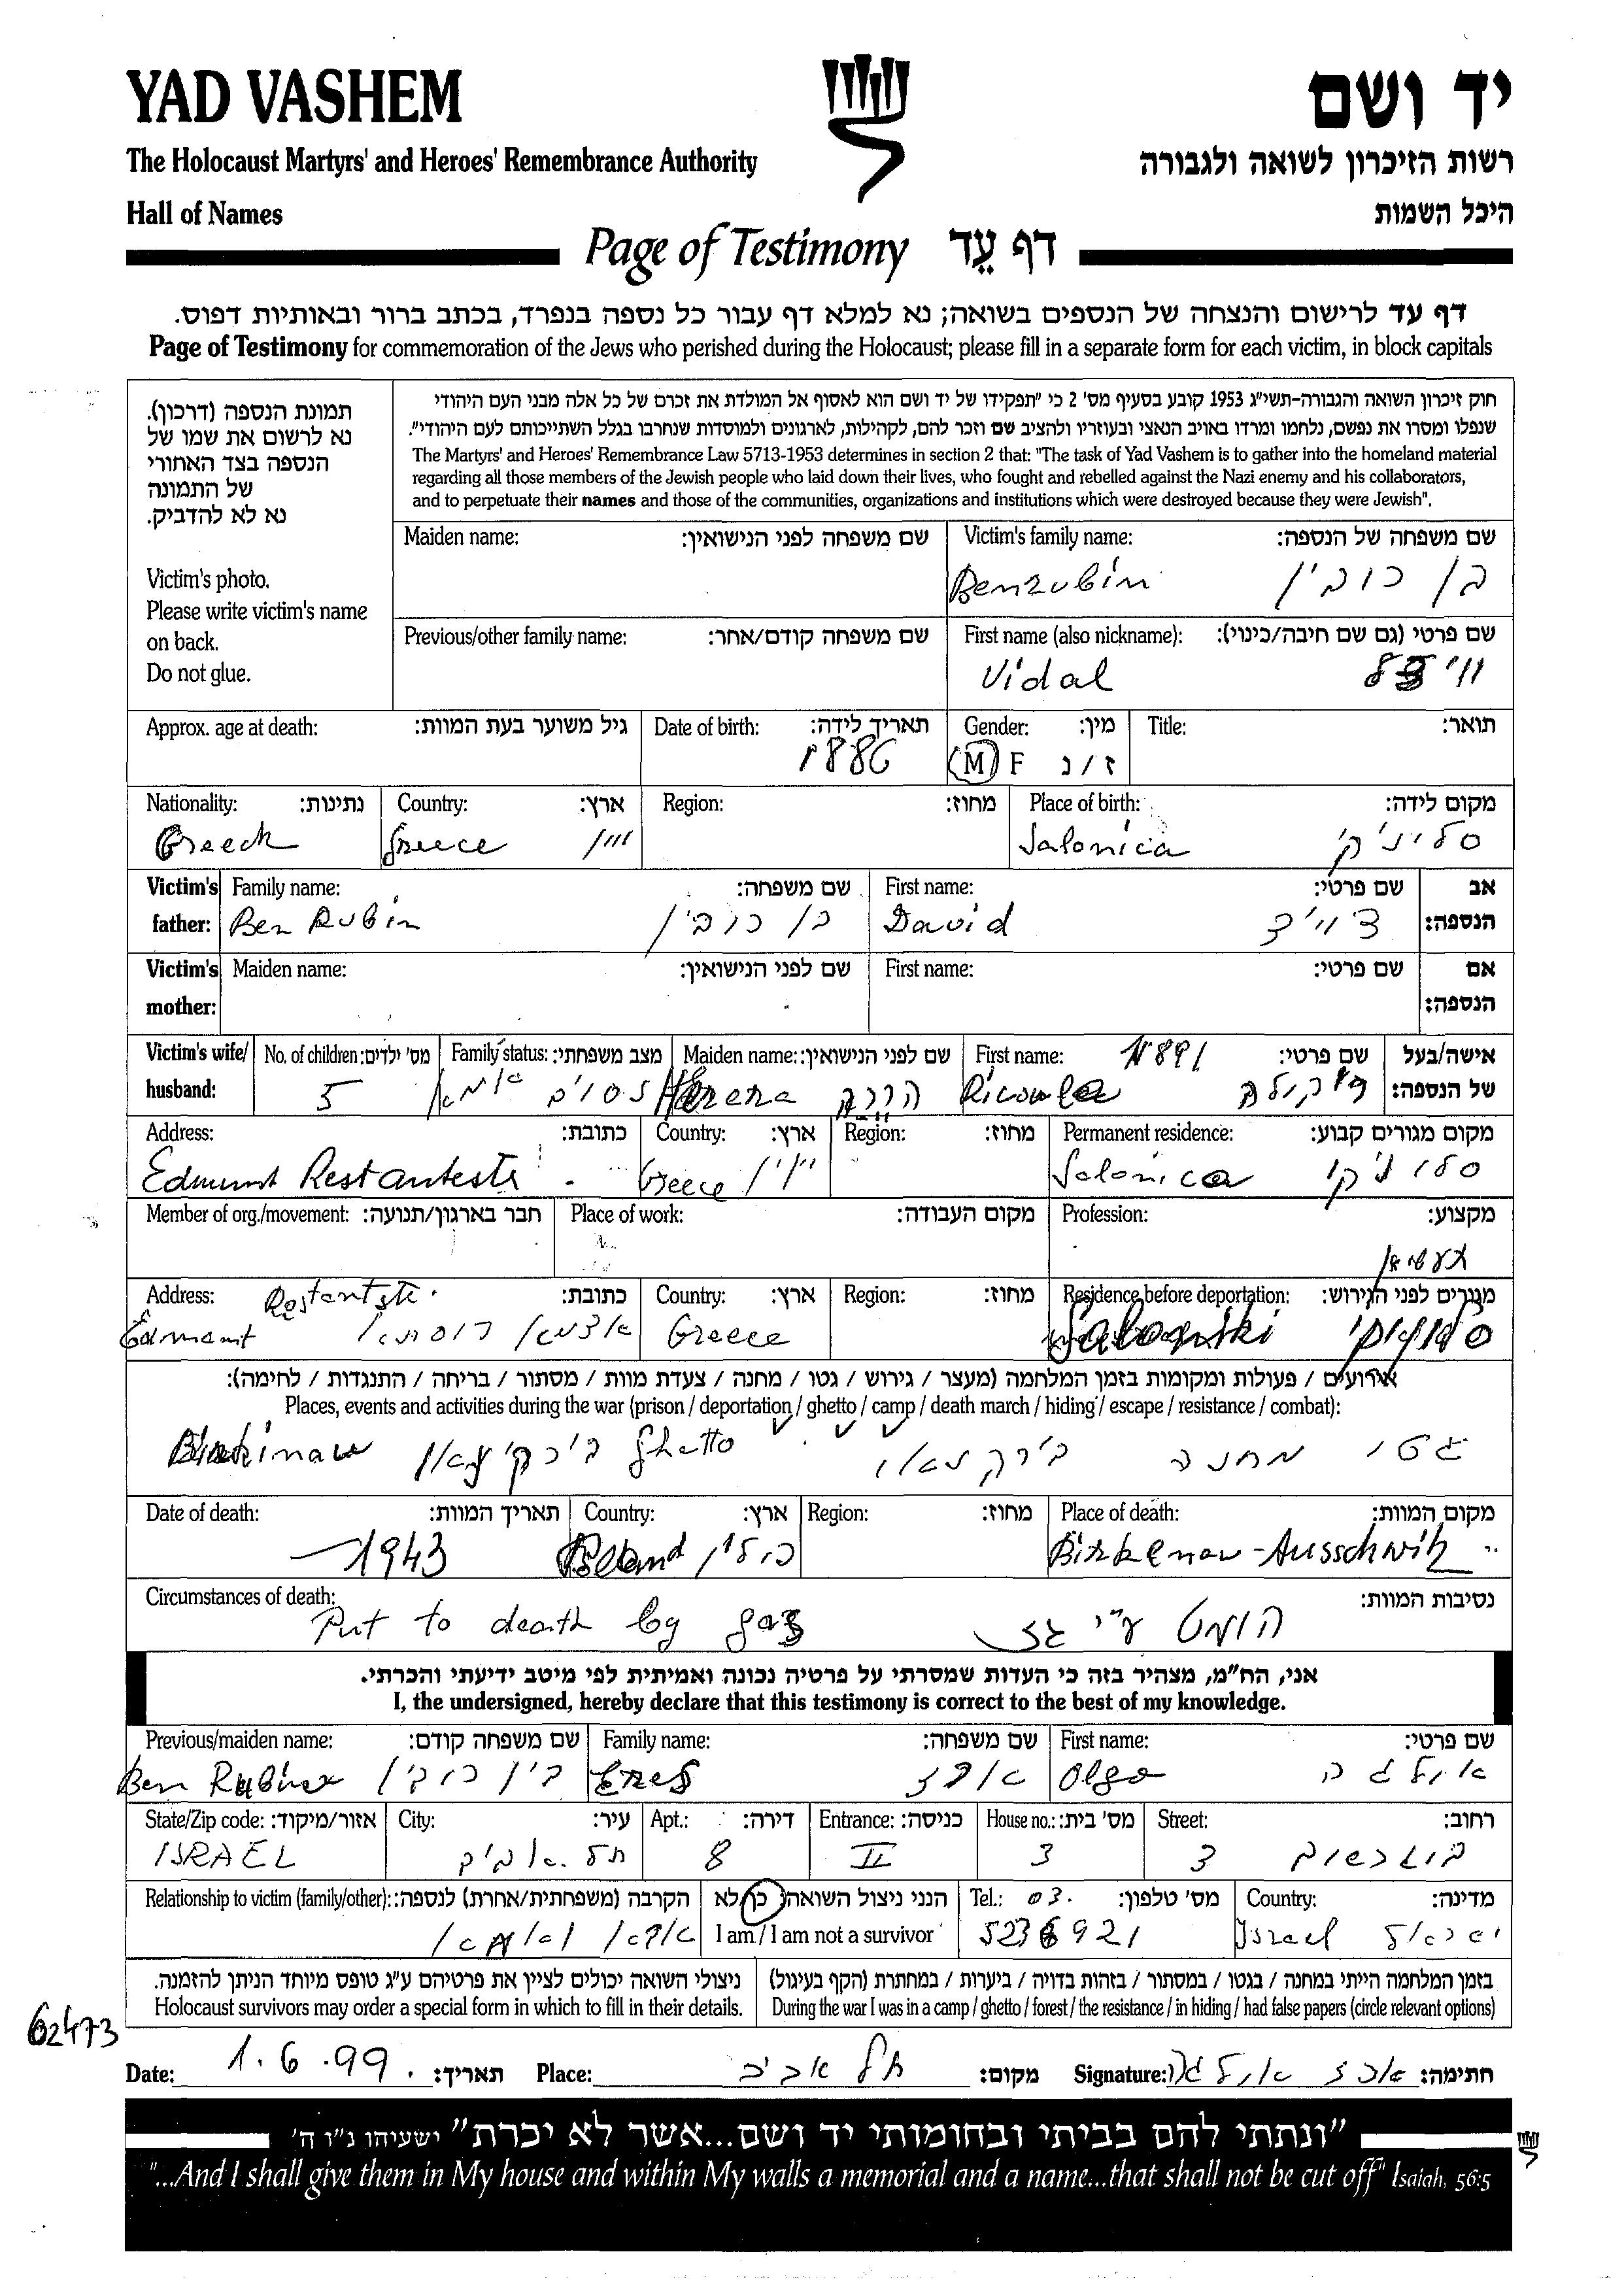 YAD VASHEM יד ושם
The Holocaust Martyrs' and Heroes' Remembrance Authority רשות הזיכרון לשואה ולגבורה
Hall of Names היכל השמות
Page of Testimony דף עֵד
דף עד לרישום והנצחה של הנספים בשואה; נא למלא דף עבור כל נספה בנפרד, בכתב ברור ובאותיות דפוס.
Page of Testimony for commemoration of the Jews who perished during the Holocaust; please fill in a separate form for each victim, in block capitals
תמונת הנספה (דרכון).
נא לרשום את שמו של
הנספה בצד האחורי
של התמונה
נא לא להדביק.
Victim's photo.
Please write victim's name
on back.
Do not glue.
חוק זיכרון השואה והגבורה-תשי"ג 1953 קובע בסעיף מס' 2 כי "תפקידו של יד ושם הוא לאסוף אל המולדת את זכרם של כל אלה מבני העם היהודי
שנפלו ומסרו את נפשם, נלחמו ומרדו באויב הנאצי ובעוזריו ולהציב שם וזכר להם, לקהילות, לארגונים ולמוסדות שנחרבו בגלל השתייכותם לעם היהודי".
The Martyrs' and Heroes' Remembrance Law 5713-1953 determines in section 2 that: "The task of Yad Vashem is to gather into the homeland material
regarding all those members of the Jewish people who laid down their lives, who fought and rebelled against the Nazi enemy and his collaborators,
and to perpetuate their names and those of the communities, organizations and institutions which were destroyed because they were Jewish".
Maiden name: שם משפחה לפני הנישואין: Victim's family name: שם משפחה של הנספה:
Benrubin בן רובין
Previous/other family name: שם משפחה קודם/אחר: First name (also nickname): שם פרטי (גם שם חיבה/כינוי):
Vidal
Approx. age at death: גיל משוער בעת המוות: Date of birth: תאריך לידה: Gender: מין: Title: תואר:
1886 M F ז/נ
Nationality: נתינות: Country: ארץ: Region: מחוז: Place of birth: מקום לידה:
Greech Greece יוון Salonica סלוניקי
Victim's father: Family name: שם משפחה: First name: שם פרטי: אב הנספה:
Ben Rubin בן רובין David דויד
Victim's mother: Maiden name: שם לפני הנישואין: First name: שם פרטי: אם הנספה:
Victim's wife/husband: No. of children: מס' ילדים: Family status: מצב משפחתי: Maiden name: שם לפני הנישואין: First name: 1891 שם פרטי: אישה/בעל של הנספה:
5
Address: כתובת: Country: ארץ: Region: מחוז: Permanent residence: מקום מגורים קבוע:
Edmunt Greece יוון Salonica סלוניקי
Member of org./movement: חבר בארגון/תנועה: Place of work: מקום העבודה: Profession: מקצוע:
Address: כתובת: Country: ארץ: Region: מחוז: Residence before deportation: מגורים לפני הגירוש:
Edmunt Greece Saloniki
אירועים / פעולות ומקומות בזמן המלחמה (מעצר / גירוש / גטו / מחנה / צעדת מוות / מסתור / בריחה / התנגדות / לחימה):
Places, events and activities during the war (prison / deportation / ghetto / camp / death march / hiding / escape / resistance / combat):
Ghetto גטו מחנה בירקנאו
Date of death: תאריך המוות: Country: ארץ: Region: מחוז: Place of death: מקום המוות:
1943 Poland פולין Birkenaw-Ausschwitz
Circumstances of death: נסיבות המוות:
Put to death by gaz הומת ע"י גז
אני, הח"מ, מצהיר בזה כי העדות שמסרתי על פרטיה נכונה ואמיתית לפי מיטב ידיעתי והכרתי.
I, the undersigned, hereby declare that this testimony is correct to the best of my knowledge.
Previous/maiden name: שם משפחה קודם: Family name: שם משפחה: First name: שם פרטי:
Ben בן רובין Erez ארז Olga אולגה
State/Zip code: אזור/מיקוד: City: עיר: Apt.: דירה: Entrance: כניסה: House no.: מס' בית: Street: רחוב:
ISRAEL תל אביב 8 II 3 3 בוגרשוב
Relationship to victim (family/other): הקרבה (משפחתית/אחרת) לנספה: הנני ניצול השואה: כן/לא Tel.: 03. מס' טלפון: Country: מדינה:
I am/I am not a survivor 5236921 Israel ישראל
ניצולי השואה יכולים לציין את פרטיהם ע"ג טופס מיוחד הניתן להזמנה. בזמן המלחמה הייתי במחנה / בגטו / במסתור / בזהות בדויה / ביערות / במחתרת (הקף בעיגול)
Holocaust survivors may order a special form in which to fill in their details. During the war I was in a camp / ghetto / forest / the resistance / in hiding / had false papers (circle relevant options)
62473
Date: 1.6.99. תאריך: Place: תל אביב מקום: Signature: ארז אולגה חתימה:
"ונתתי להם בביתי ובחומותי יד ושם...אשר לא יכרת" ישעיהו נ"ו ה'
"...And I shall give them in My house and within My walls a memorial and a name...that shall not be cut off" Isaiah, 56:5